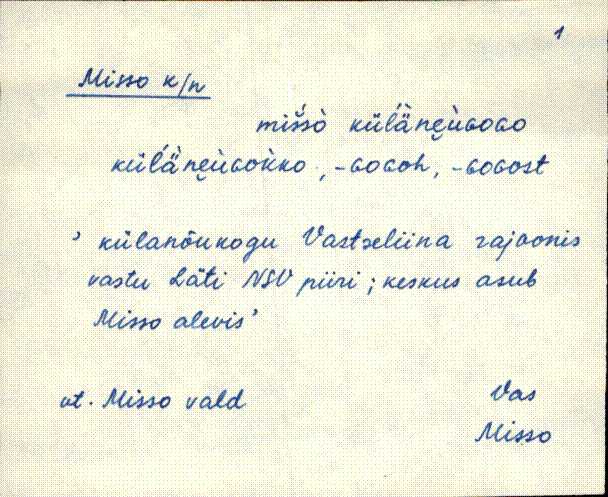 1
Misso k/n
mišsò külänęùɢoɢo
külänęùɢok̀ko, -ɢoɢoh, -ɢoɢost
’ külanõukogu Vastseliina rajoonis
vastu Läti NSV piiri; keskus asub
Misso alevis’
vt. Misso vald
Vas
Misso